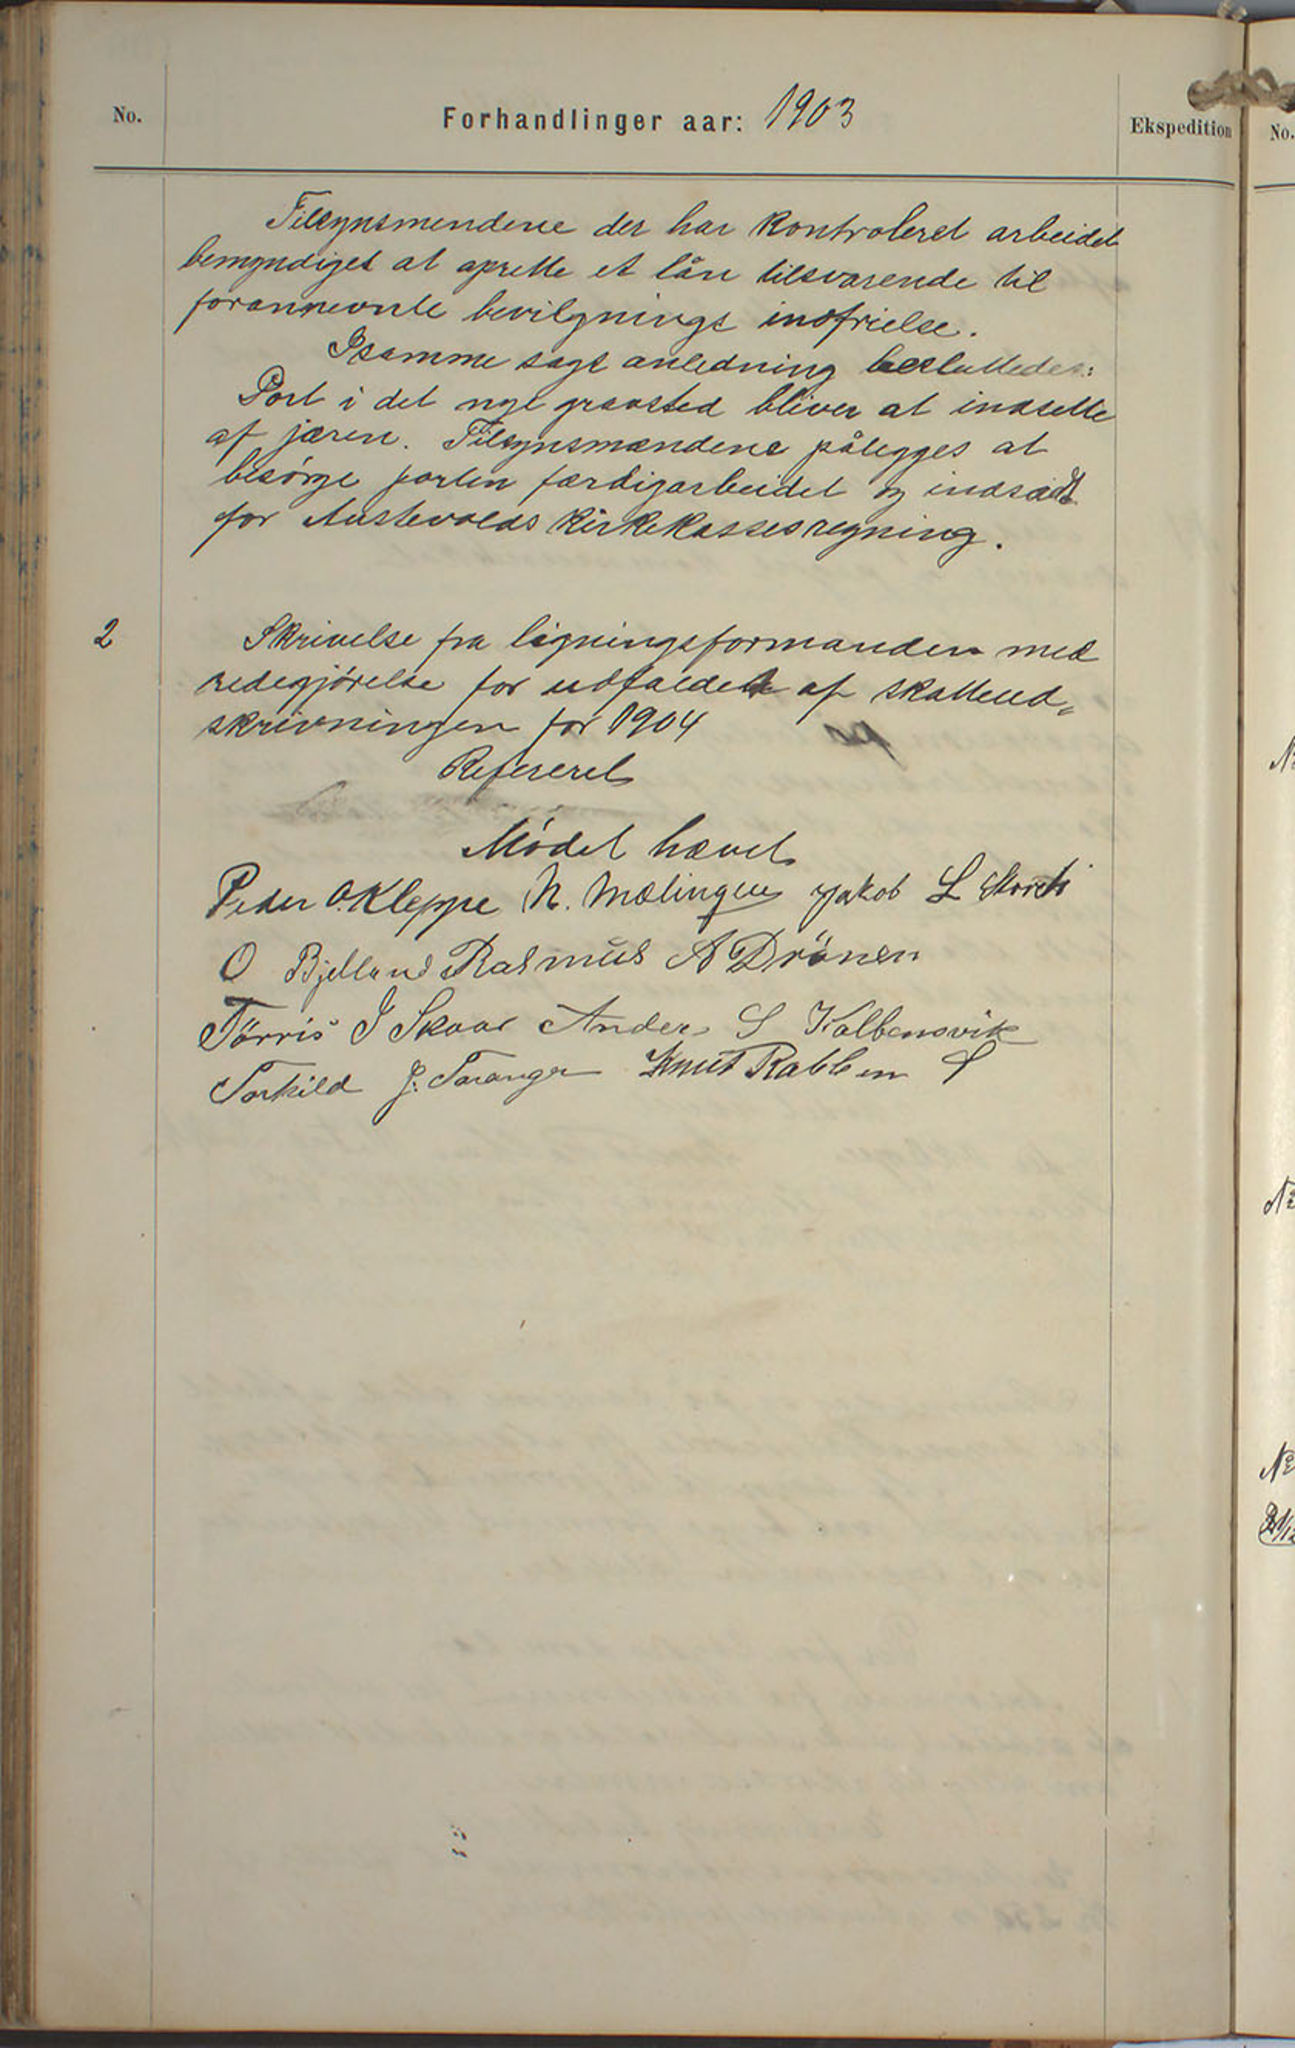 No.
Forhandlinger aar: 1903
Ekspedition
No.
Tilsynsmendene der har kontroleret arbeidet
bemyndiget at oprette et lån tilsvarende til
forannevnte bevilgnings indfrielse.
Isamme sags anledning besluttedes:
Port i det nye gravsted bliver at indsette
af jæren. Tilsynsmændene pålegges at
besörge porten færdigarbeidet og indsadt
for Austevolds Kirkekassesregning.
2
Skrivelse fra ligningsformanden med
redegjörelse for udfaldet af skatteud„
skrivningen for 1904
Refereret
Mödet hævet
Peder O. Kleppe N. Mælingen Jakob L
O Bjelland Rasmus A Drönen
Törris J Skaar Anders S Kolbensvik
Torkild J. Taranger Knut Rabben S